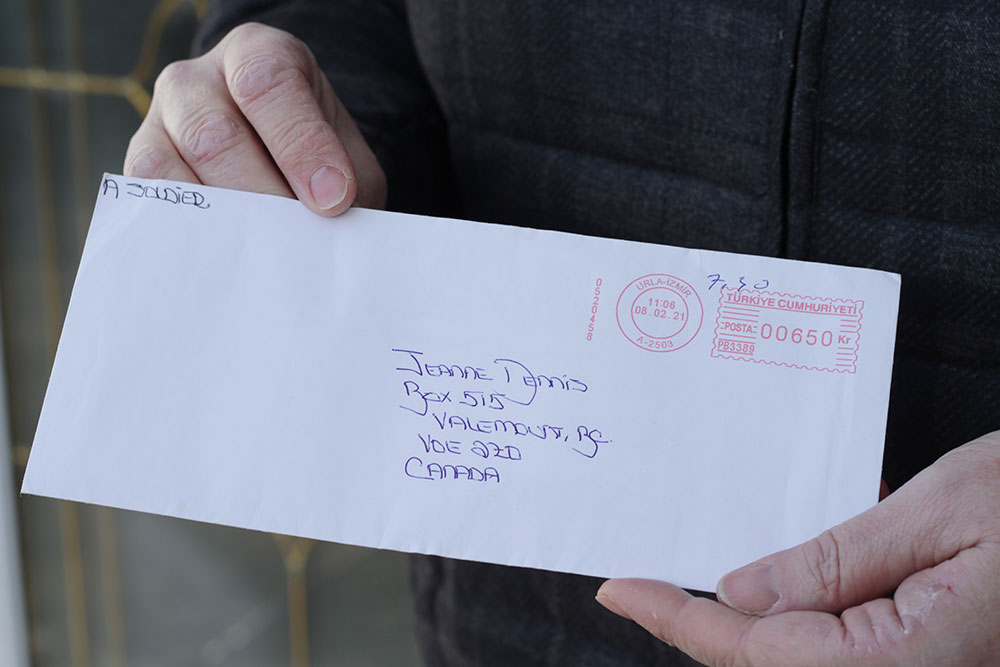 A SOLDIER
0520458
URLA-İZMİR
11:06
08.02.21
A-2503
7,50
TÜRKİYE CUMHURİYETİ
POSTA 00650 Kr
PB3389
JEANNE DENNIS
BOX 515
VALEMOUNT, BC
V0E 2Z0
CANADA